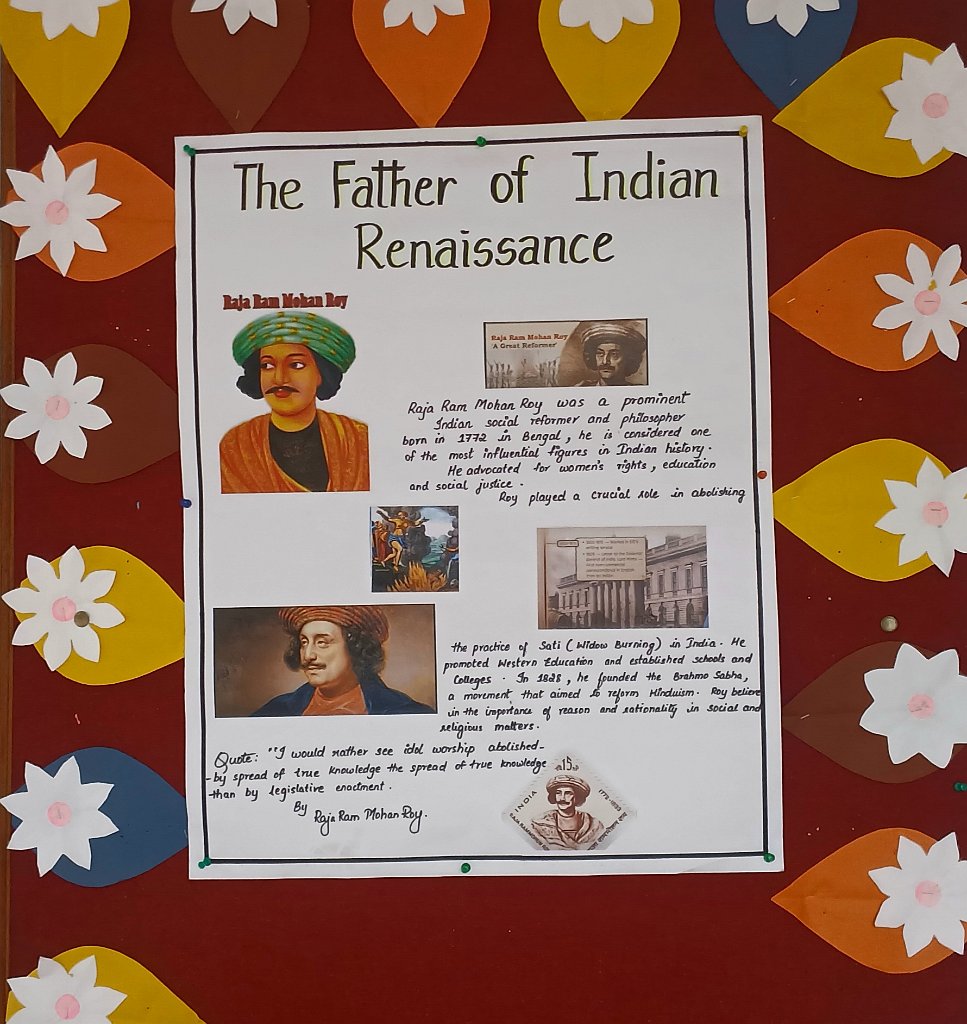 The Father of Indian
Renaissance
Raja Ram Mohan Roy
Raja Ram Mohan Roy
'A Great Reformer'
Raja Ram Mohan Roy was a prominent
Indian social reformer and philosopher
born in 1772 in Bengal, he is considered one
of the most influential figures in Indian history.
He advocated for women's rights, education
and social justice.
Roy played a crucial role in abolishing
the practice of Sati (Widow Burning) in India. He
promoted Western Education and established schools and
Colleges. In 1828, he founded the Brahmo Sabha,
a movement that aimed to reform Hinduism. Roy believe
in the importance of reason and rationality in social and
religious matters.
Quote: "I would rather see idol worship abolished-
-by spread of true knowledge the spread of true knowledge
-than by legislative enactment.
By
Raja Ram Mohan Roy.
15
INDIA
1772-1833